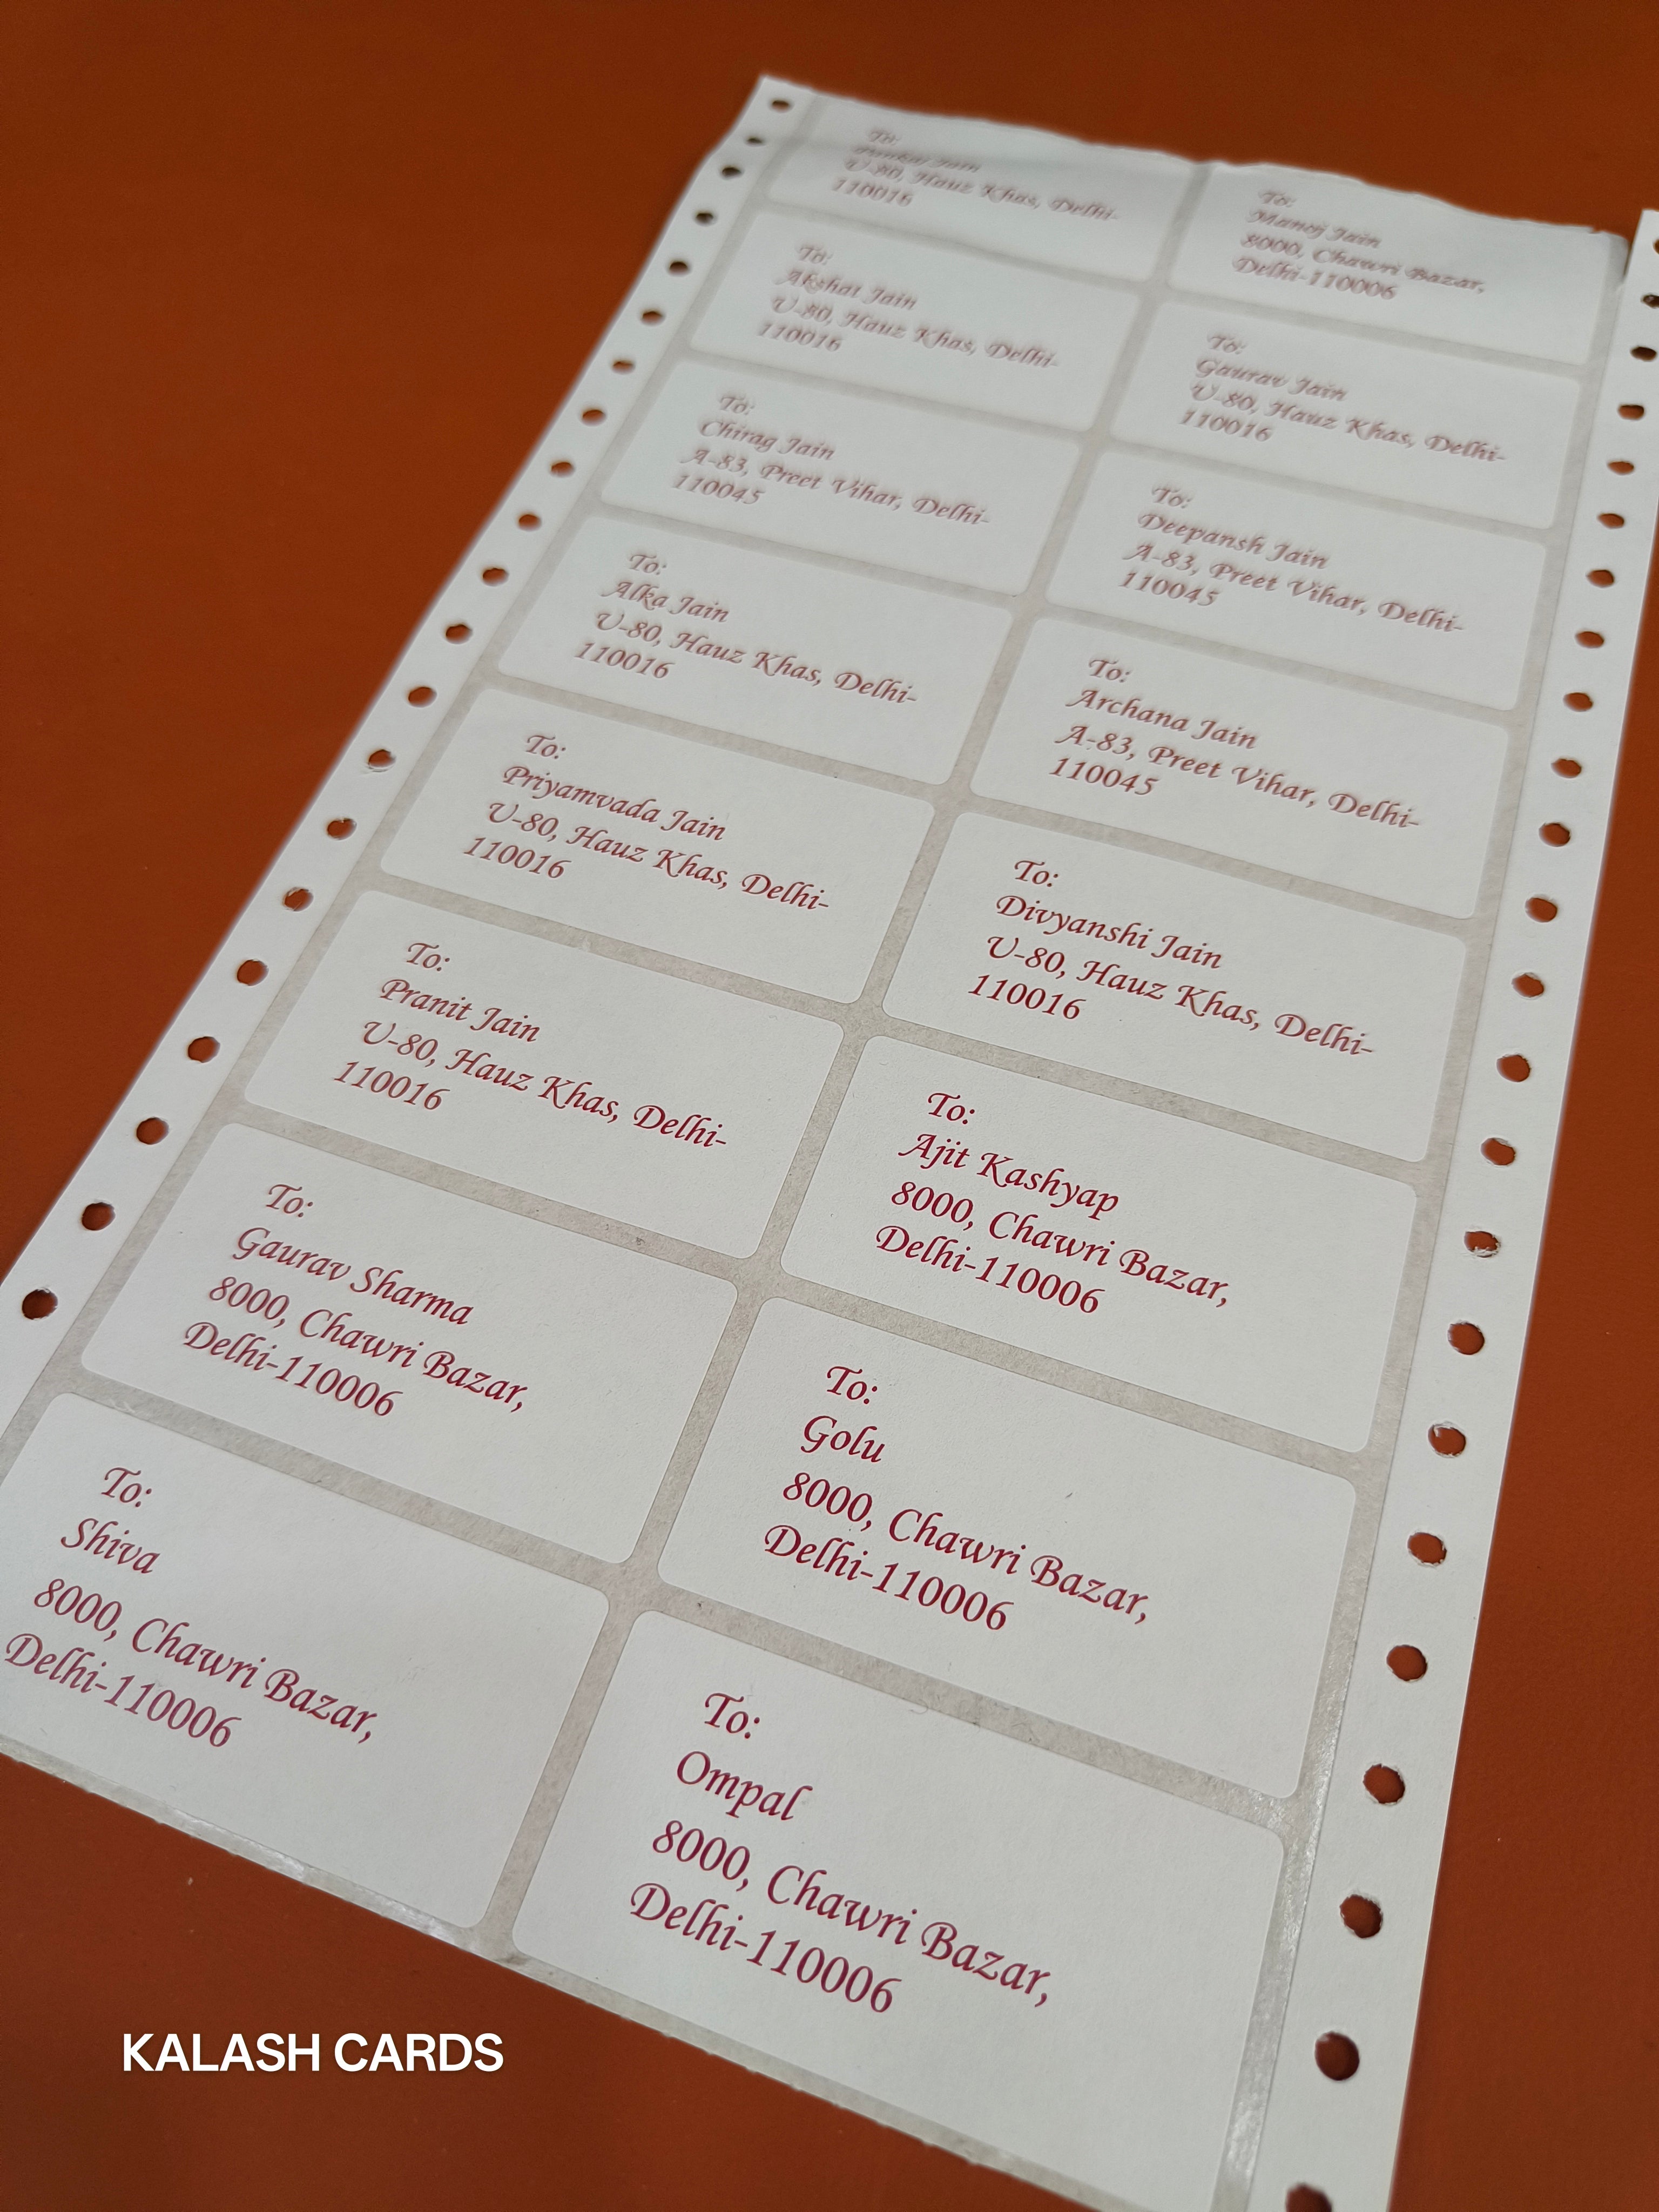 To:
Pankaj Jain
U-80, Hauz Khas, Delhi-
110016
To:
Manoj Jain
8000, Chawri Bazar,
Delhi-110006
To:
Akshat Jain
U-80, Hauz Khas, Delhi-
110016
To:
Gaurav Jain
U-80, Hauz Khas, Delhi-
110016
To:
Chirag Jain
A-83, Preet Vihar, Delhi-
110045
To:
Deepansh Jain
A-83, Preet Vihar, Delhi-
110045
To:
Alka Jain
U-80, Hauz Khas, Delhi-
110016
To:
Archana Jain
A-83, Preet Vihar, Delhi-
110045
To:
Priyamvada Jain
U-80, Hauz Khas, Delhi-
110016
To:
Divyanshi Jain
U-80, Hauz Khas, Delhi-
110016
To:
Pranit Jain
U-80, Hauz Khas, Delhi-
110016
To:
Ajit Kashyap
8000, Chawri Bazar,
Delhi-110006
To:
Gaurav Sharma
8000, Chawri Bazar,
Delhi-110006
To:
Golu
8000, Chawri Bazar,
Delhi-110006
To:
Shiva
8000, Chawri Bazar,
Delhi-110006
To:
Ompal
8000, Chawri Bazar,
Delhi-110006
KALASH CARDS